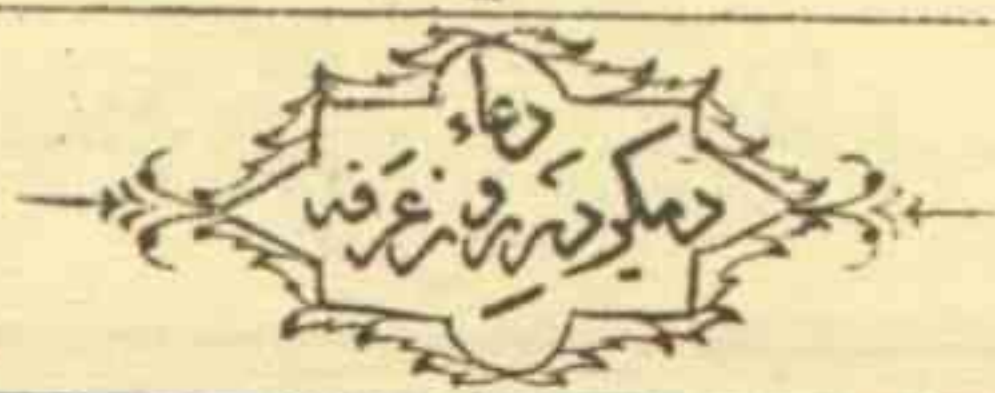 دعاء
دیگر در روز عرفه